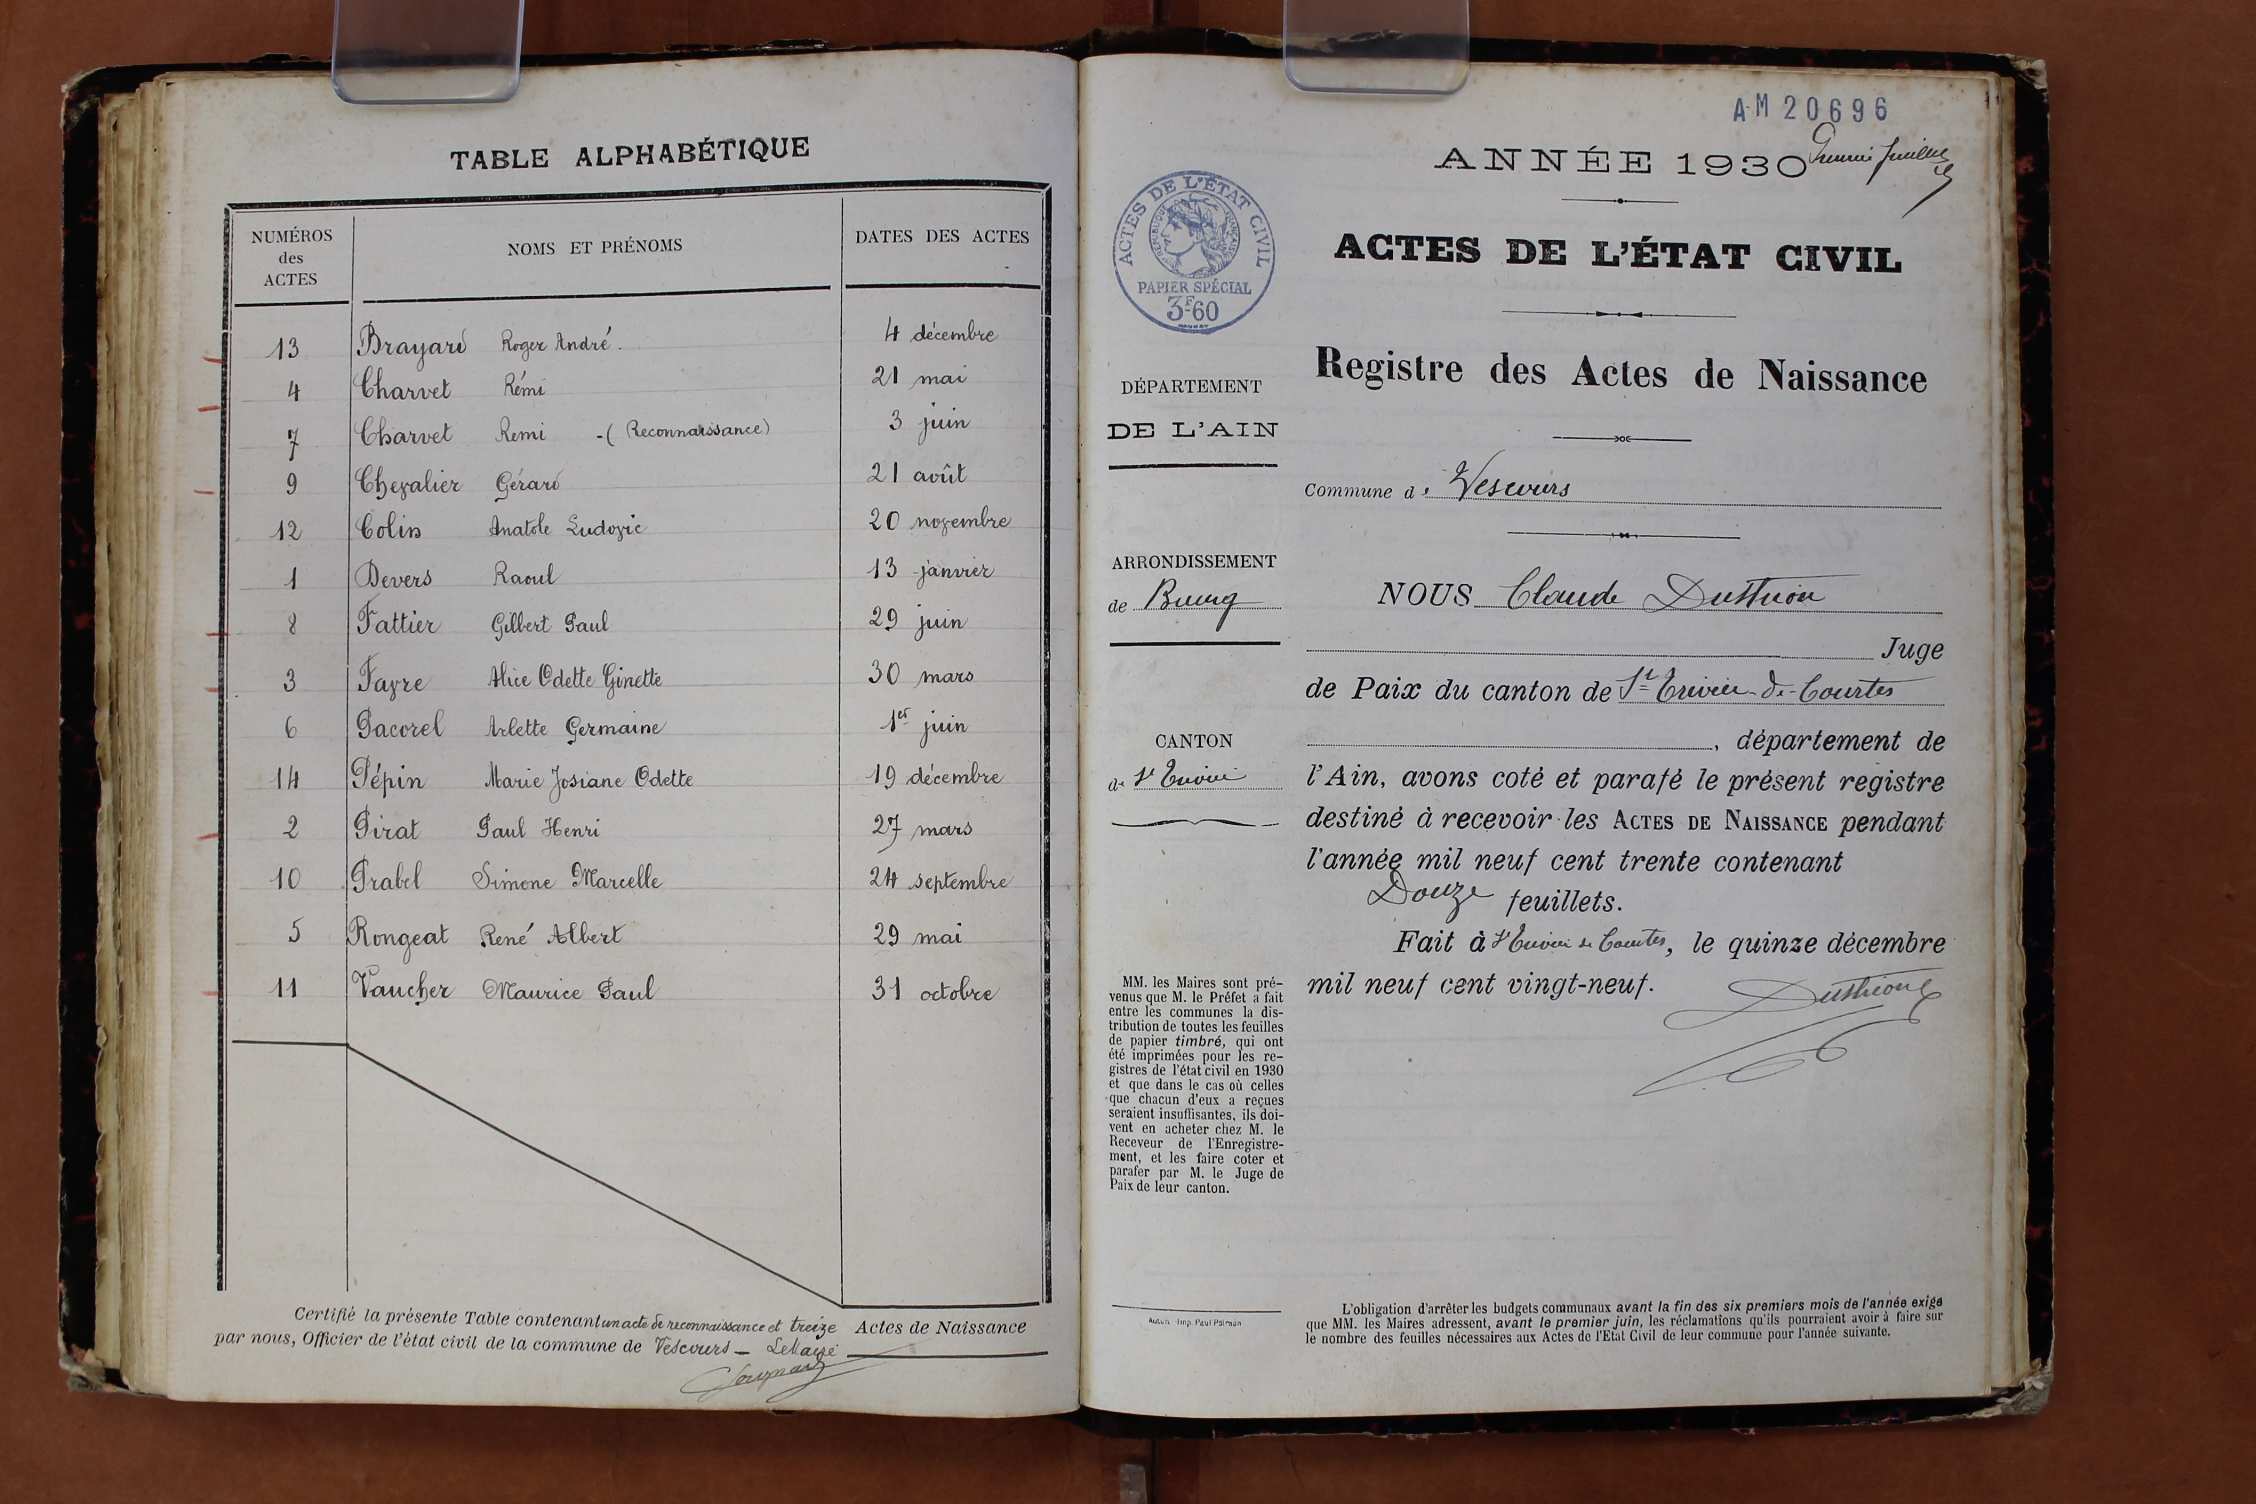 TABLE ALPHABÉTIQUE
NUMÉROS
des
ACTES
NOMS ET PRÉNOMS
DATES DES ACTES
13 Brayard Roger André. 4 décembre
4 Charvet Rémi 21 mai
7 Charvet Remi -( Reconnaissance) 3 juin
9 Chevalier Gérard 21 août
12 Colin Anatole Ludovic 20 novembre
1 Devers Raoul 13 janvier
8 Fattier Gilbert Paul 29 juin
3 Favre Alice Odette Ginette 30 mars
6 Pacorel Arlette Germaine 1er juin
14 Pépin Marie Josiane Odette 19 décembre
2 Pirat Paul Henri 27 mars
10 Prabel Simone Marcelle 24 septembre
5 Rongeat René Albert 29 mai
11 Vaucher Maurice Paul 31 octobre
Certifié la présente Table contenant un acte de reconnaissance et treize Actes de Naissance
par nous, Officier de l'état civil de la commune de Vescours –
AM 20696
ANNÉE 1930
ACTES DE L'ÉTAT CIVIL
RÉPUBLIQUE FRANÇAISE
PAPIER SPÉCIAL
3F60
ACTES DE L'ÉTAT CIVIL
Registre des Actes de Naissance
DÉPARTEMENT
DE L'AIN
Commune de Vescours
ARRONDISSEMENT
de Bourg
CANTON
de St Trivier
NOUS Claude
Juge
de Paix du canton de St Trivier-de-Courtes
, département de
l'Ain, avons coté et parafé le présent registre
destiné à recevoir les ACTES DE NAISSANCE pendant
l'année mil neuf cent trente contenant
Douze feuillets.
Fait à St Trivier de Courtes, le quinze décembre
mil neuf cent vingt-neuf.
MM. les Maires sont pré-
venus que M. le Préfet a fait
entre les communes la dis-
tribution de toutes les feuilles
de papier timbré, qui ont
été imprimées pour les re-
gistres de l'état civil en 1930
et que dans le cas où celles
que chacun d'eux a reçues
seraient insuffisantes, ils doi-
vent en acheter chez M. le
Receveur de l'Enregistre-
ment, et les faire coter et
parafer par M. le Juge de
Paix de leur canton.
Autun - Imp. Paul Polman
L'obligation d'arrêter les budgets communaux avant la fin des six premiers mois de l'année exige
que MM. les Maires adressent, avant le premier juin, les réclamations qu'ils pourraient avoir à faire sur
le nombre des feuilles nécessaires aux Actes de l'Etat Civil de leur commune pour l'année suivante.